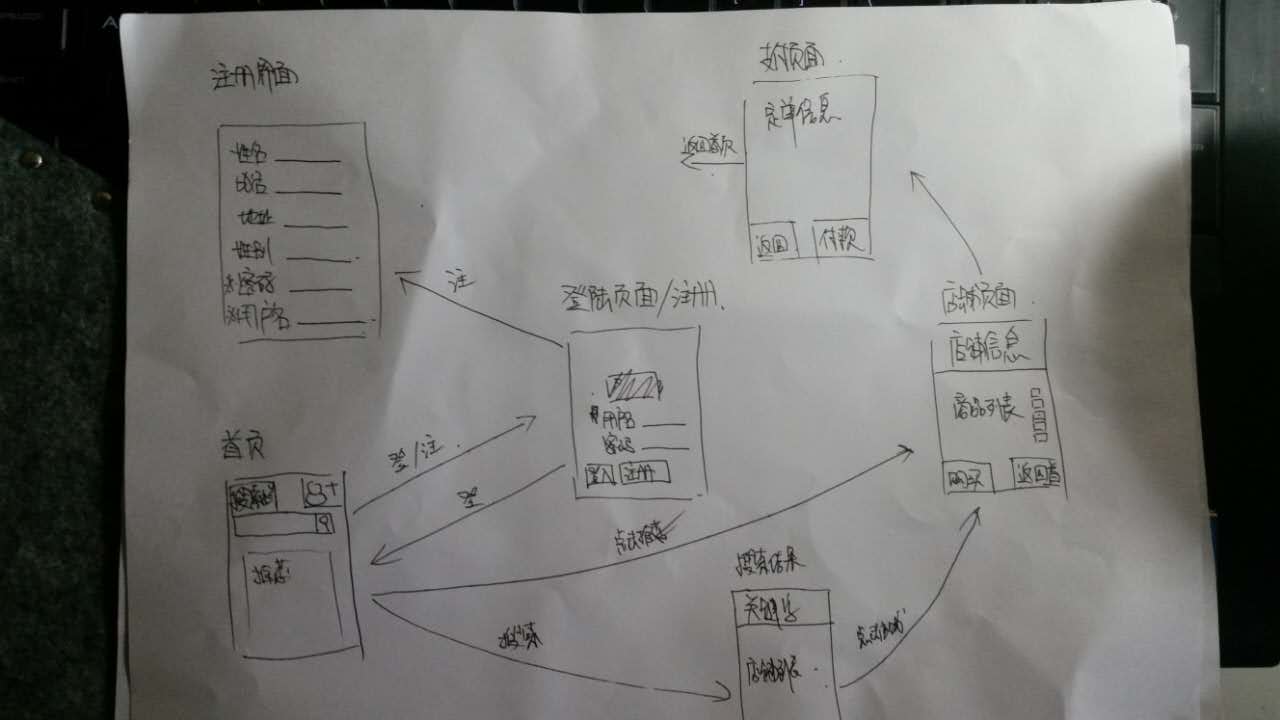 注册界面
姓名
电话
地址
性别
*密码
*用户名
支付页面
定单信息
返回首页
返回
付款
注
登陆页面/注册
用户名
密码
登入
注册
店铺页面
店铺信息
商品列表
购买
返回首
首页
推荐
登/注
登
点击推荐
搜索
搜索结果
关键字
店铺列表